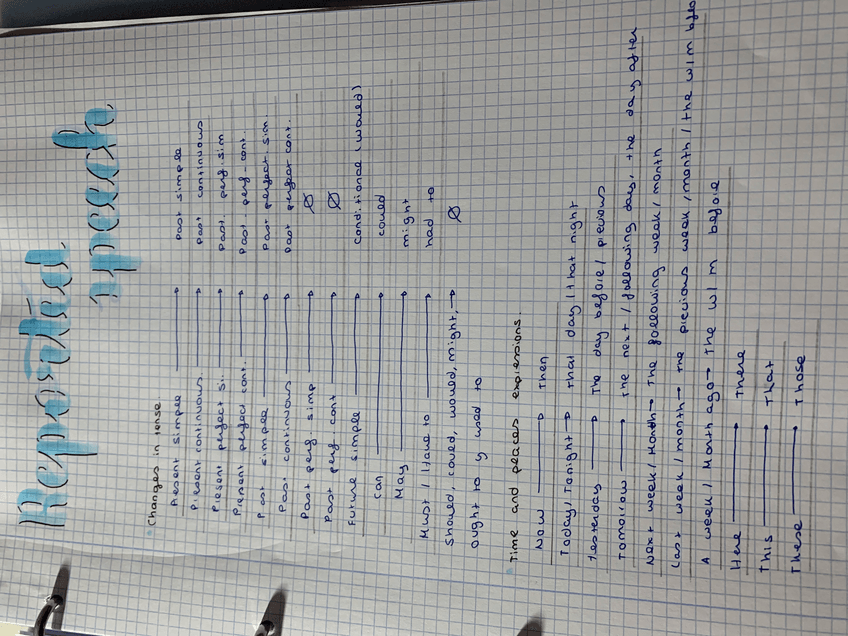 Reported
speech
Changes in tense
Present simple → Past simple
Present continuous. → Past continuous
Present perfect si... → Past. perf. sim
Present perfect cont. → Past. perf cont.
Past simple → Past perfect sim
Past continuous → Past perfect cont.
Past perf. simp → Ø
Past perf. cont → Ø
Future simple → Conditional (would)
Can → could
May → might
Must / Have to → had to
Should, could, would, might, → Ø
ought to y used to
Time and places expressions.
Now → Then
Today/Tonight → That day/that night
Yesterday → The day before/ previous
Tomorrow → The next / following day, the day after
Next week/Month → The following week/month
Last week/month → the previous week/month / the w/m befo
A week / Month ago → The w/m before
Here → There
This → That
These → Those